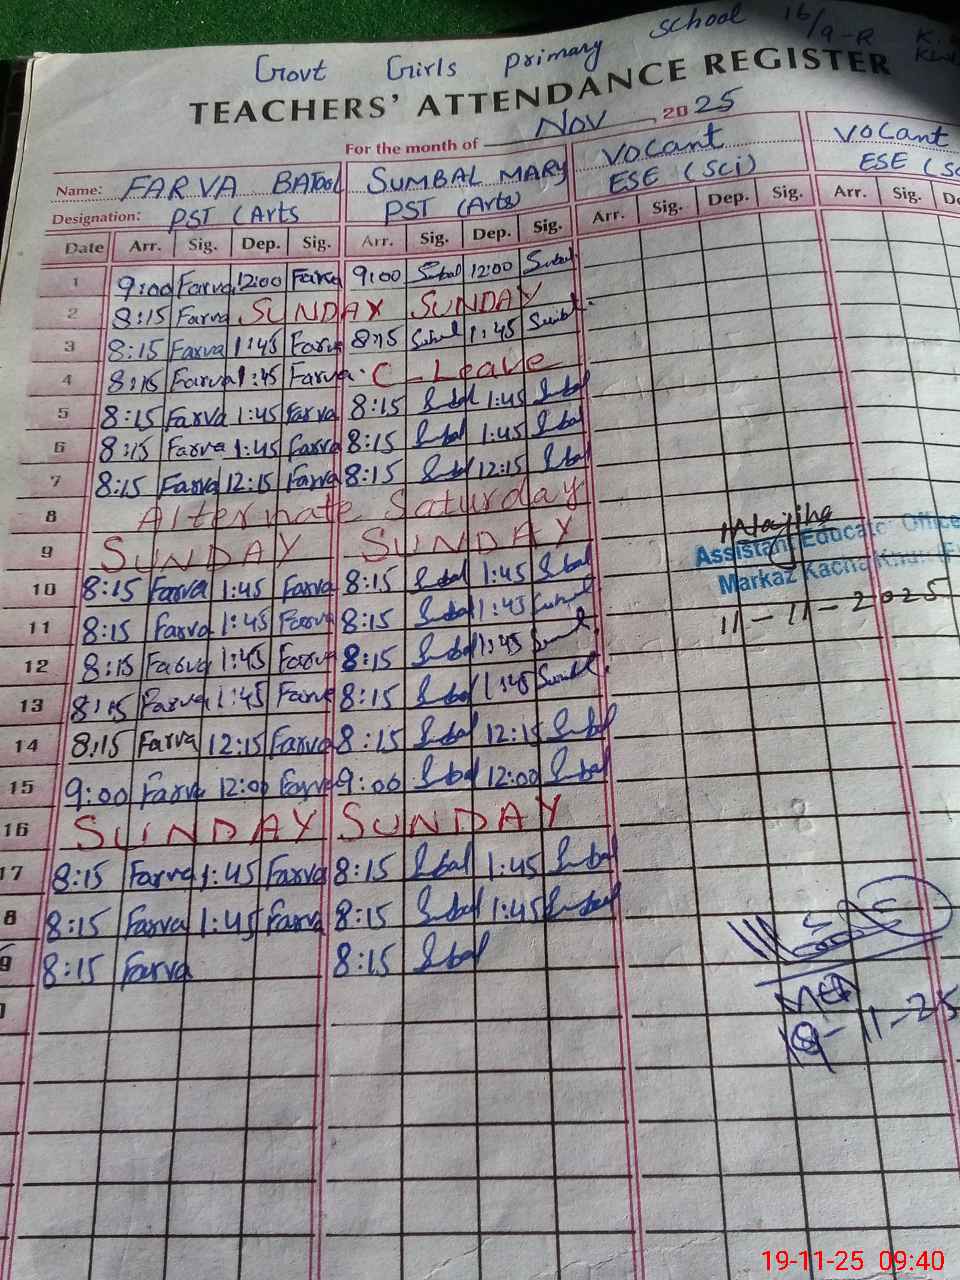 Govt Girls primary school 16/9-R K.
TEACHERS' ATTENDANCE REGISTER
For the month of Nov, 2025
Name: FARVA BATOOL SUMBAL MARY VOCANT VOCANT
Designation: PST (Arts PST (Arts) ESE (Sci) ESE (Sc
Date Arr. Sig. Dep. Sig. Arr. Sig. Dep. Sig. Arr. Sig. Dep. Sig. Arr. Sig. De
1 9:00 Farva 12:00 Farva 9:00 Sumbal 12:00 Sumbal
2 8:15 Farva SUNDAY SUNDAY
3 8:15 Farva 1:45 Farva 8:15 Sumbal 1:45 Sumbal
4 8:15 Farva 1:45 Farva C-Leave
5 8:15 Farva 1:45 Farva 8:15 Sumbal 1:45 Sumbal
6 8:15 Farva 1:45 Farva 8:15 Sumbal 1:45 Sumbal
7 8:15 Farva 12:15 Farva 8:15 Sumbal 12:15 Sumbal
8 Alternate Saturday
9 SUNDAY SUNDAY
Wajiha
Assistant Educatio Office
Markaz Kacha Khu
11-11-2025
10 8:15 Farva 1:45 Farva 8:15 Sumbal 1:45 Sumbal
11 8:15 Farva 1:45 Farva 8:15 Sumbal 1:45 Sumbal
12 8:15 Farva 1:45 Farva 8:15 Sumbal 1:45 Sumbal
13 8:15 Farva 1:45 Farva 8:15 Sumbal 1:45 Sumbal
14 8:15 Farva 12:15 Farva 8:15 Sumbal 12:15 Sumbal
15 9:00 Farva 12:00 Farva 9:00 Sumbal 12:00 Sumbal
16 SUNDAY SUNDAY
17 8:15 Farva 1:45 Farva 8:15 Sumbal 1:45 Sumbal
8 8:15 Farva 1:45 Farva 8:15 Sumbal 1:45 Sumbal
9 8:15 Farva 8:15 Sumbal
MEA
18-11-25
19-11-25 09:40